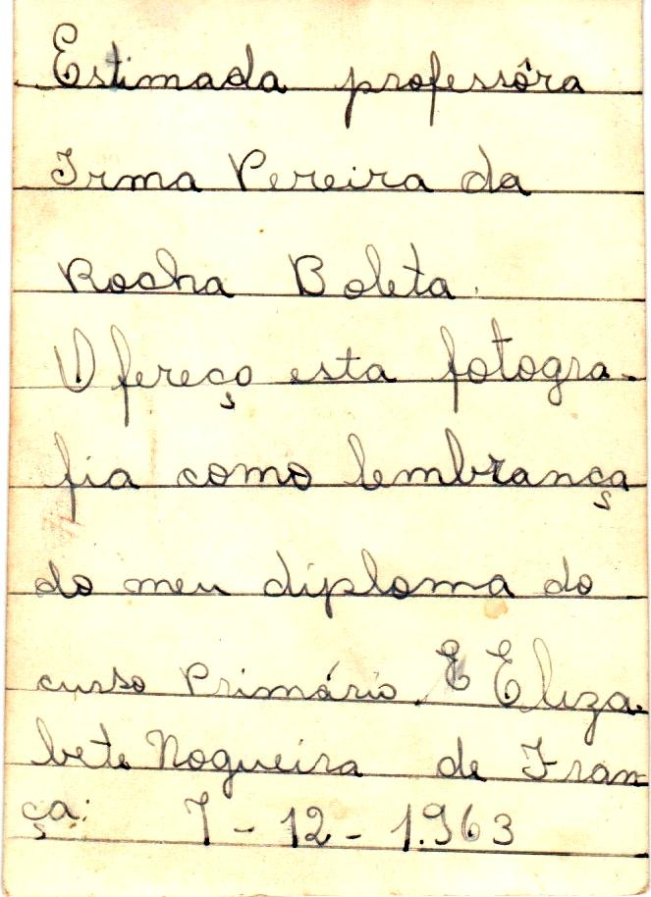 Estimada professôra
Irma Pereira da
Rocha Boleta.
Ofereço esta fotogra-
fia como lembrança
do meu diploma do
curso Primário. E Eliza-
bete Nogueira de Fran-
ça: 7-12-1.963